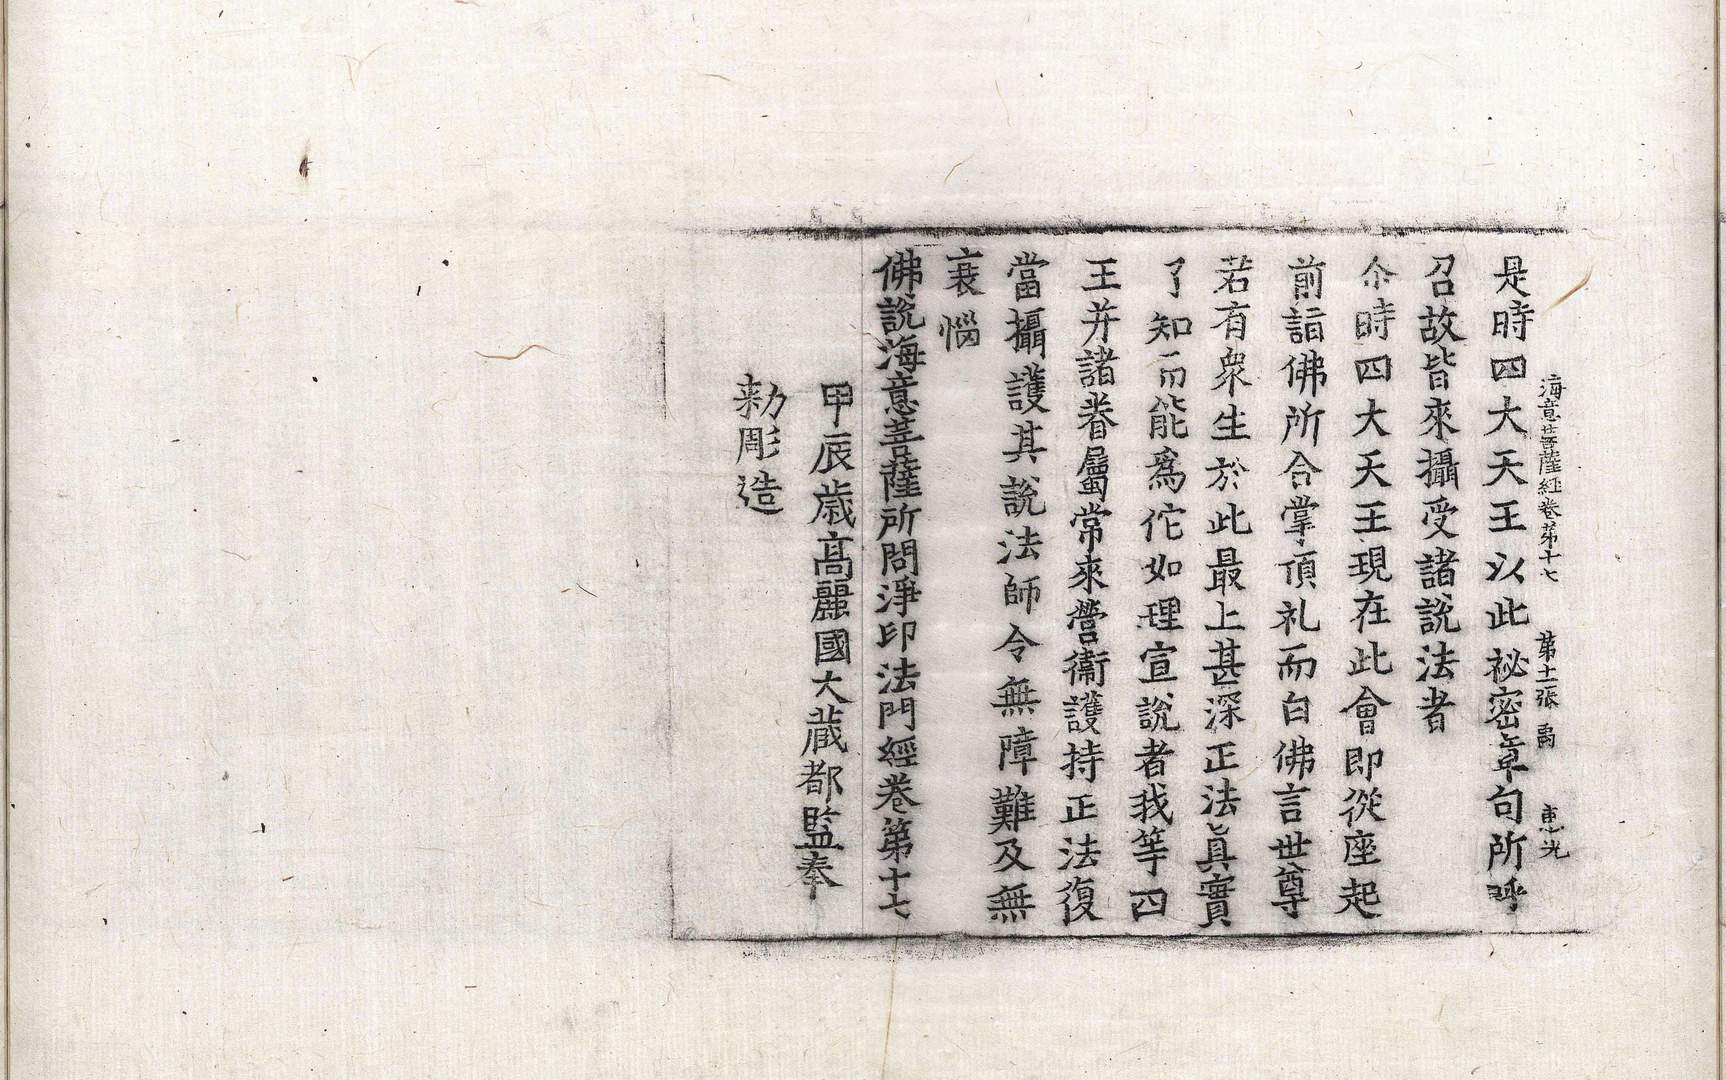 海意菩薩經卷第十七 第十一張 禹 惠光
是時四大天王以此祕密章句所呼
召故皆來攝受諸說法者
尒時四大天王現在此會即從座起
前詣佛所合掌頂礼而白佛言世尊
若有衆生於此最上甚深正法眞實
了知而能爲佗如理宣說者我等四
王并諸眷屬常來營衞護持正法復
當攝護其說法師令無障難及無
衰惱
佛說海意菩薩所問淨印法門經卷第十七
甲辰歲高麗國大藏都監奉
勑彫造